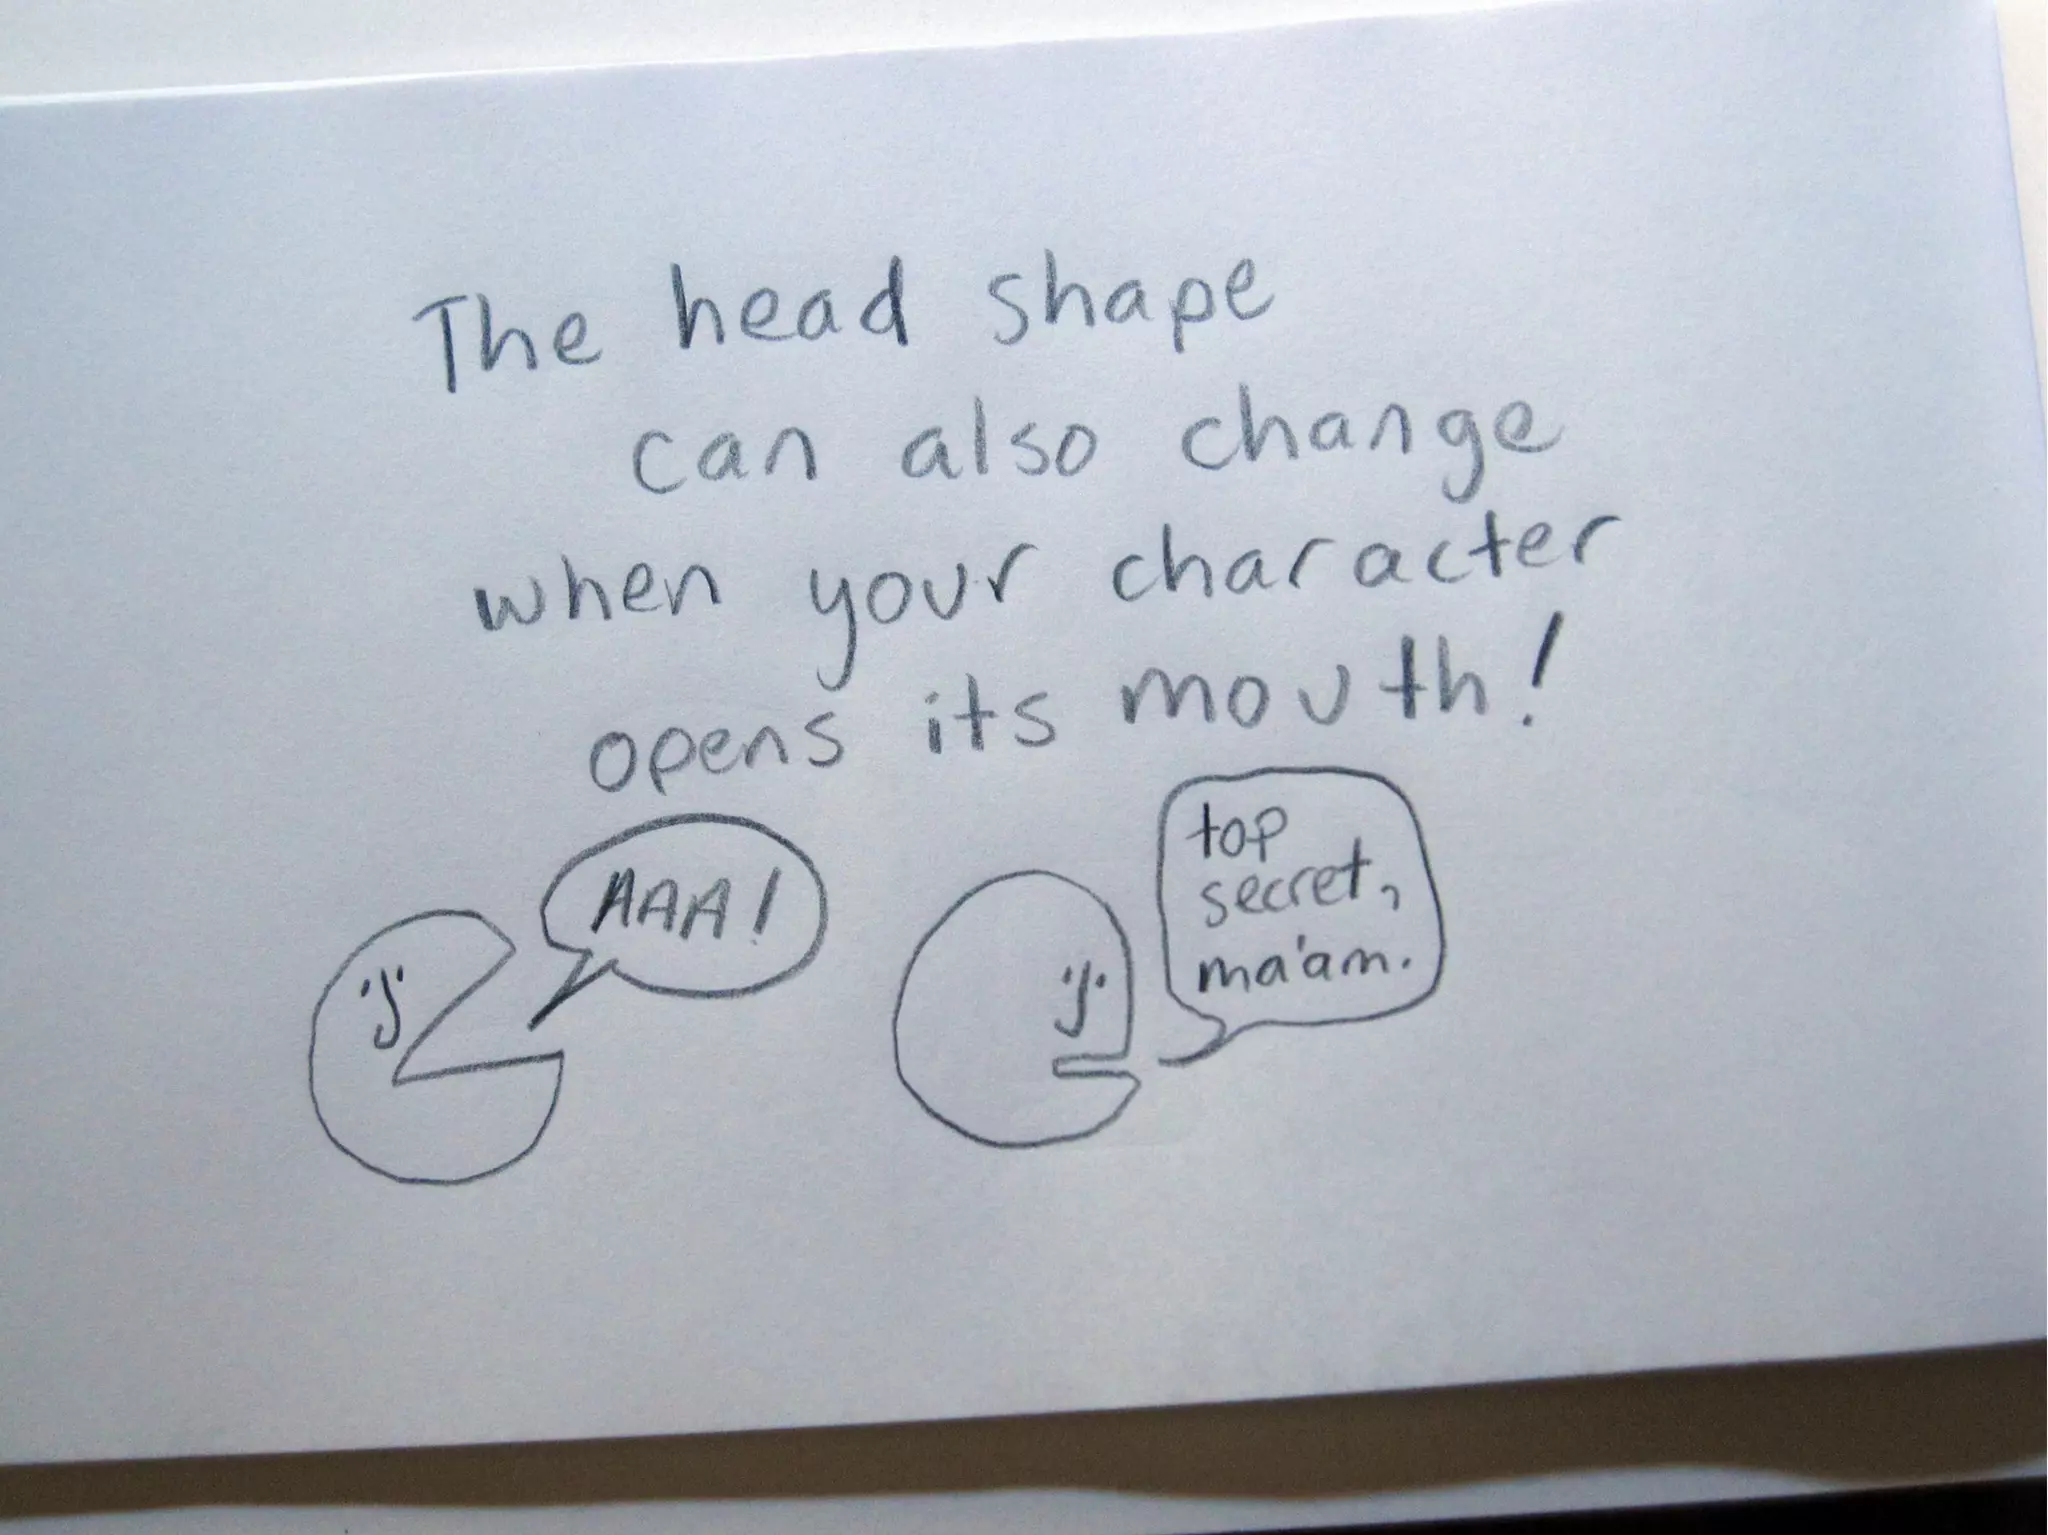 The head shape
can also change
when your character
opens its mouth!
AAA!
top
secret,
ma'am.